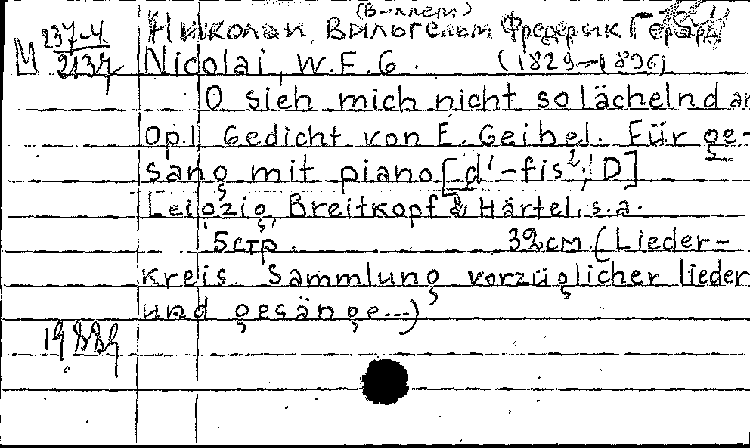 (Виллем)
Николаи, Вильгельм Фредерик Герард
М 237-4/2137 Nicolai, W.F.G. (1829-1896)
O sieh mich nicht so lächelnd an
Op.1 Gedicht von E. Geibel. Für ge-
sang mit piano [d¹-fis²; D]
Leipzig, Breitkopf & Härtel, s.a.
5 стр. 32 см. (Lieder-
kreis. Sammlung vorzüglicher lieder
und gesänge...)
19889